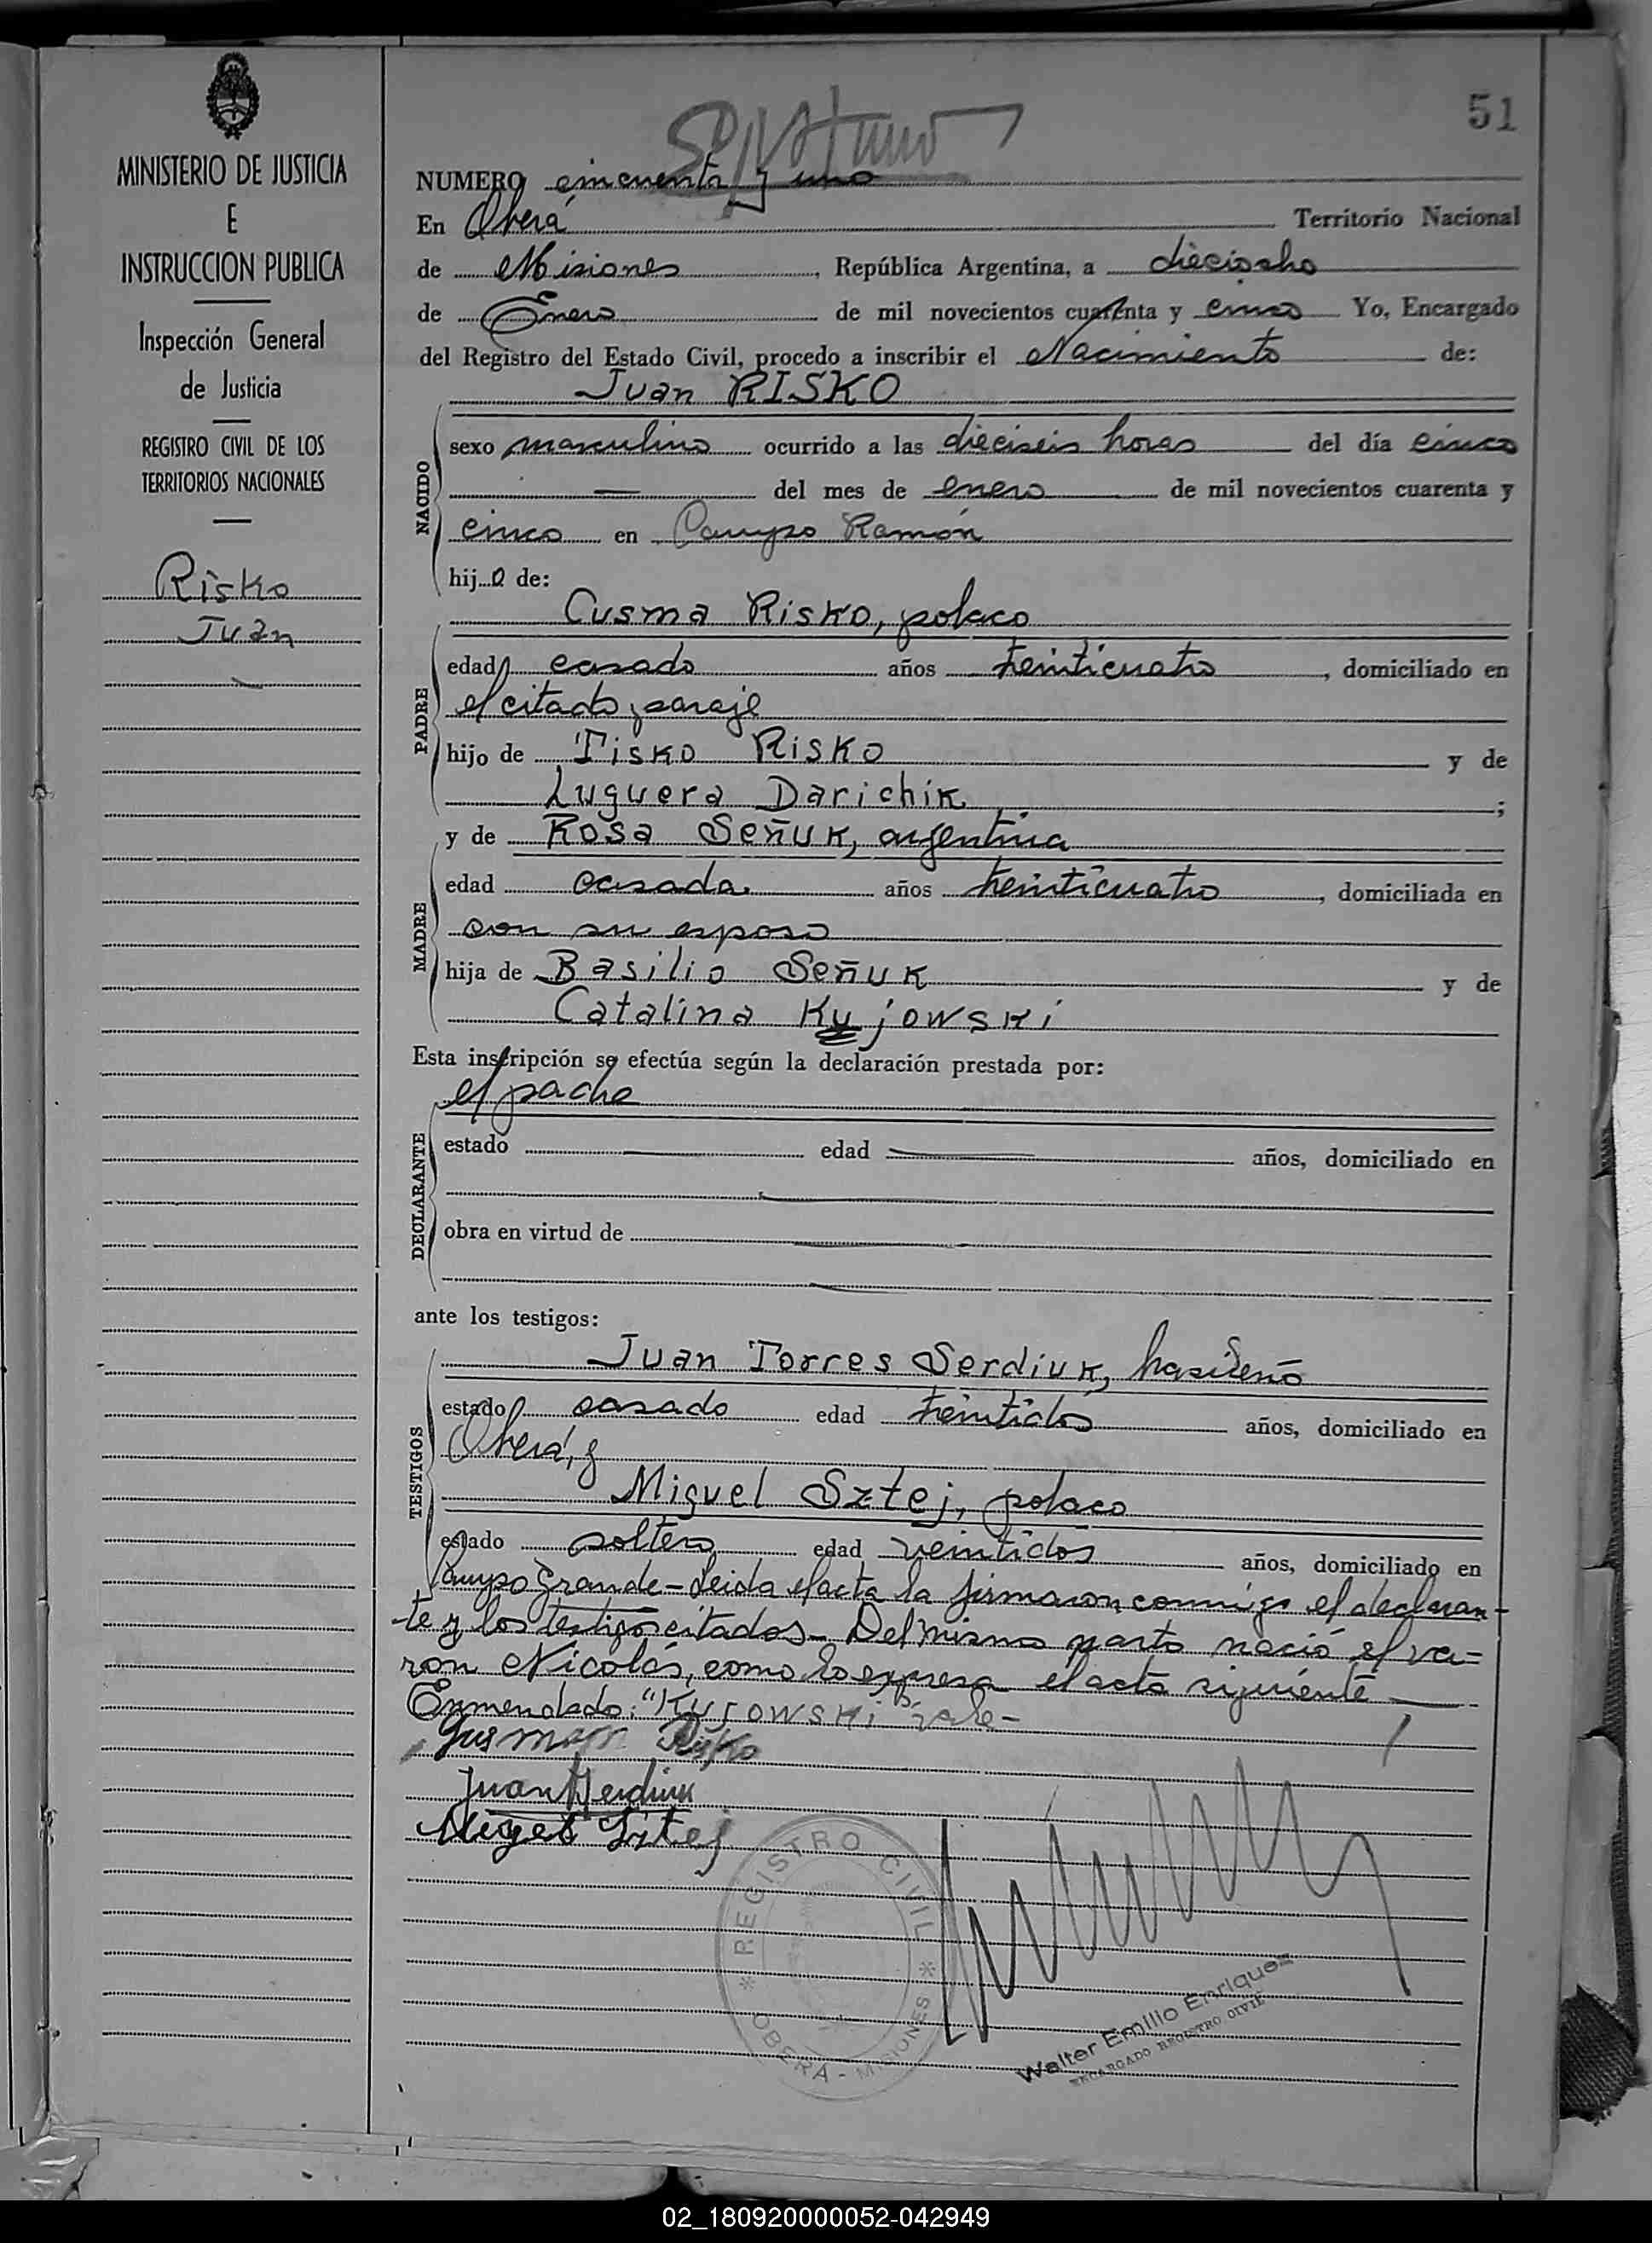 MINISTERIO DE JUSTICIA
E
INSTRUCCION PUBLICA
Inspección General
de Justicia
REGISTRO CIVIL DE LOS
TERRITORIOS NACIONALES
Risko
Juan
51
NUMERO cincuenta y uno
En Oberá Territorio Nacional
de Misiones, República Argentina, a dieciocho
de Enero de mil novecientos cuarenta y cinco Yo, Encargado
del Registro del Estado Civil, procedo a inscribir el Nacimiento de:
Juan RISKO
NACIDO
sexo masculino ocurrido a las dieciseis horas del día cinco
— del mes de enero de mil novecientos cuarenta y
cinco en Campo Ramón
hijo de:
Cusma Risko, polaco
PADRE
edad casado años treinticuatro, domiciliado en
el citado paraje
hijo de Tisko Risko y de
Luguera Darichik ;
y de Rosa Señuk, argentina
MADRE
edad casada años treinticuatro, domiciliada en
con su esposo
hija de Basilio Señuk y de
Catalina Kujowski
Esta inscripción se efectúa según la declaración prestada por:
el padre
DECLARANTE
estado — edad — años, domiciliado en
obra en virtud de
ante los testigos:
TESTIGOS
Juan Torres Serdiuk, brasileño
estado casado edad treintidos años, domiciliado en
Oberá, y
Miguel Sztej, polaco
estado soltero edad veintidos años, domiciliado en
Campo Grande - Leida el acta la firmaron conmigo el declaran-
te y los testigos citados - Del mismo parto nació el va=
ron Nicolás, como lo expresa el acta siguiente —
Enmendado: "Kujowski", vale -
Risko
Juan Serdiuk
Sztej
REGISTRO CIVIL
OBERA - MISIONES
Walter Emilio Enriquez
ENCARGADO REGISTRO CIVIL
02_180920000052-042949